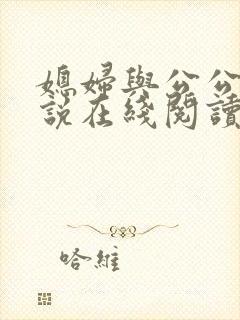 媳婦與公公
說在綫閱讀
哈維